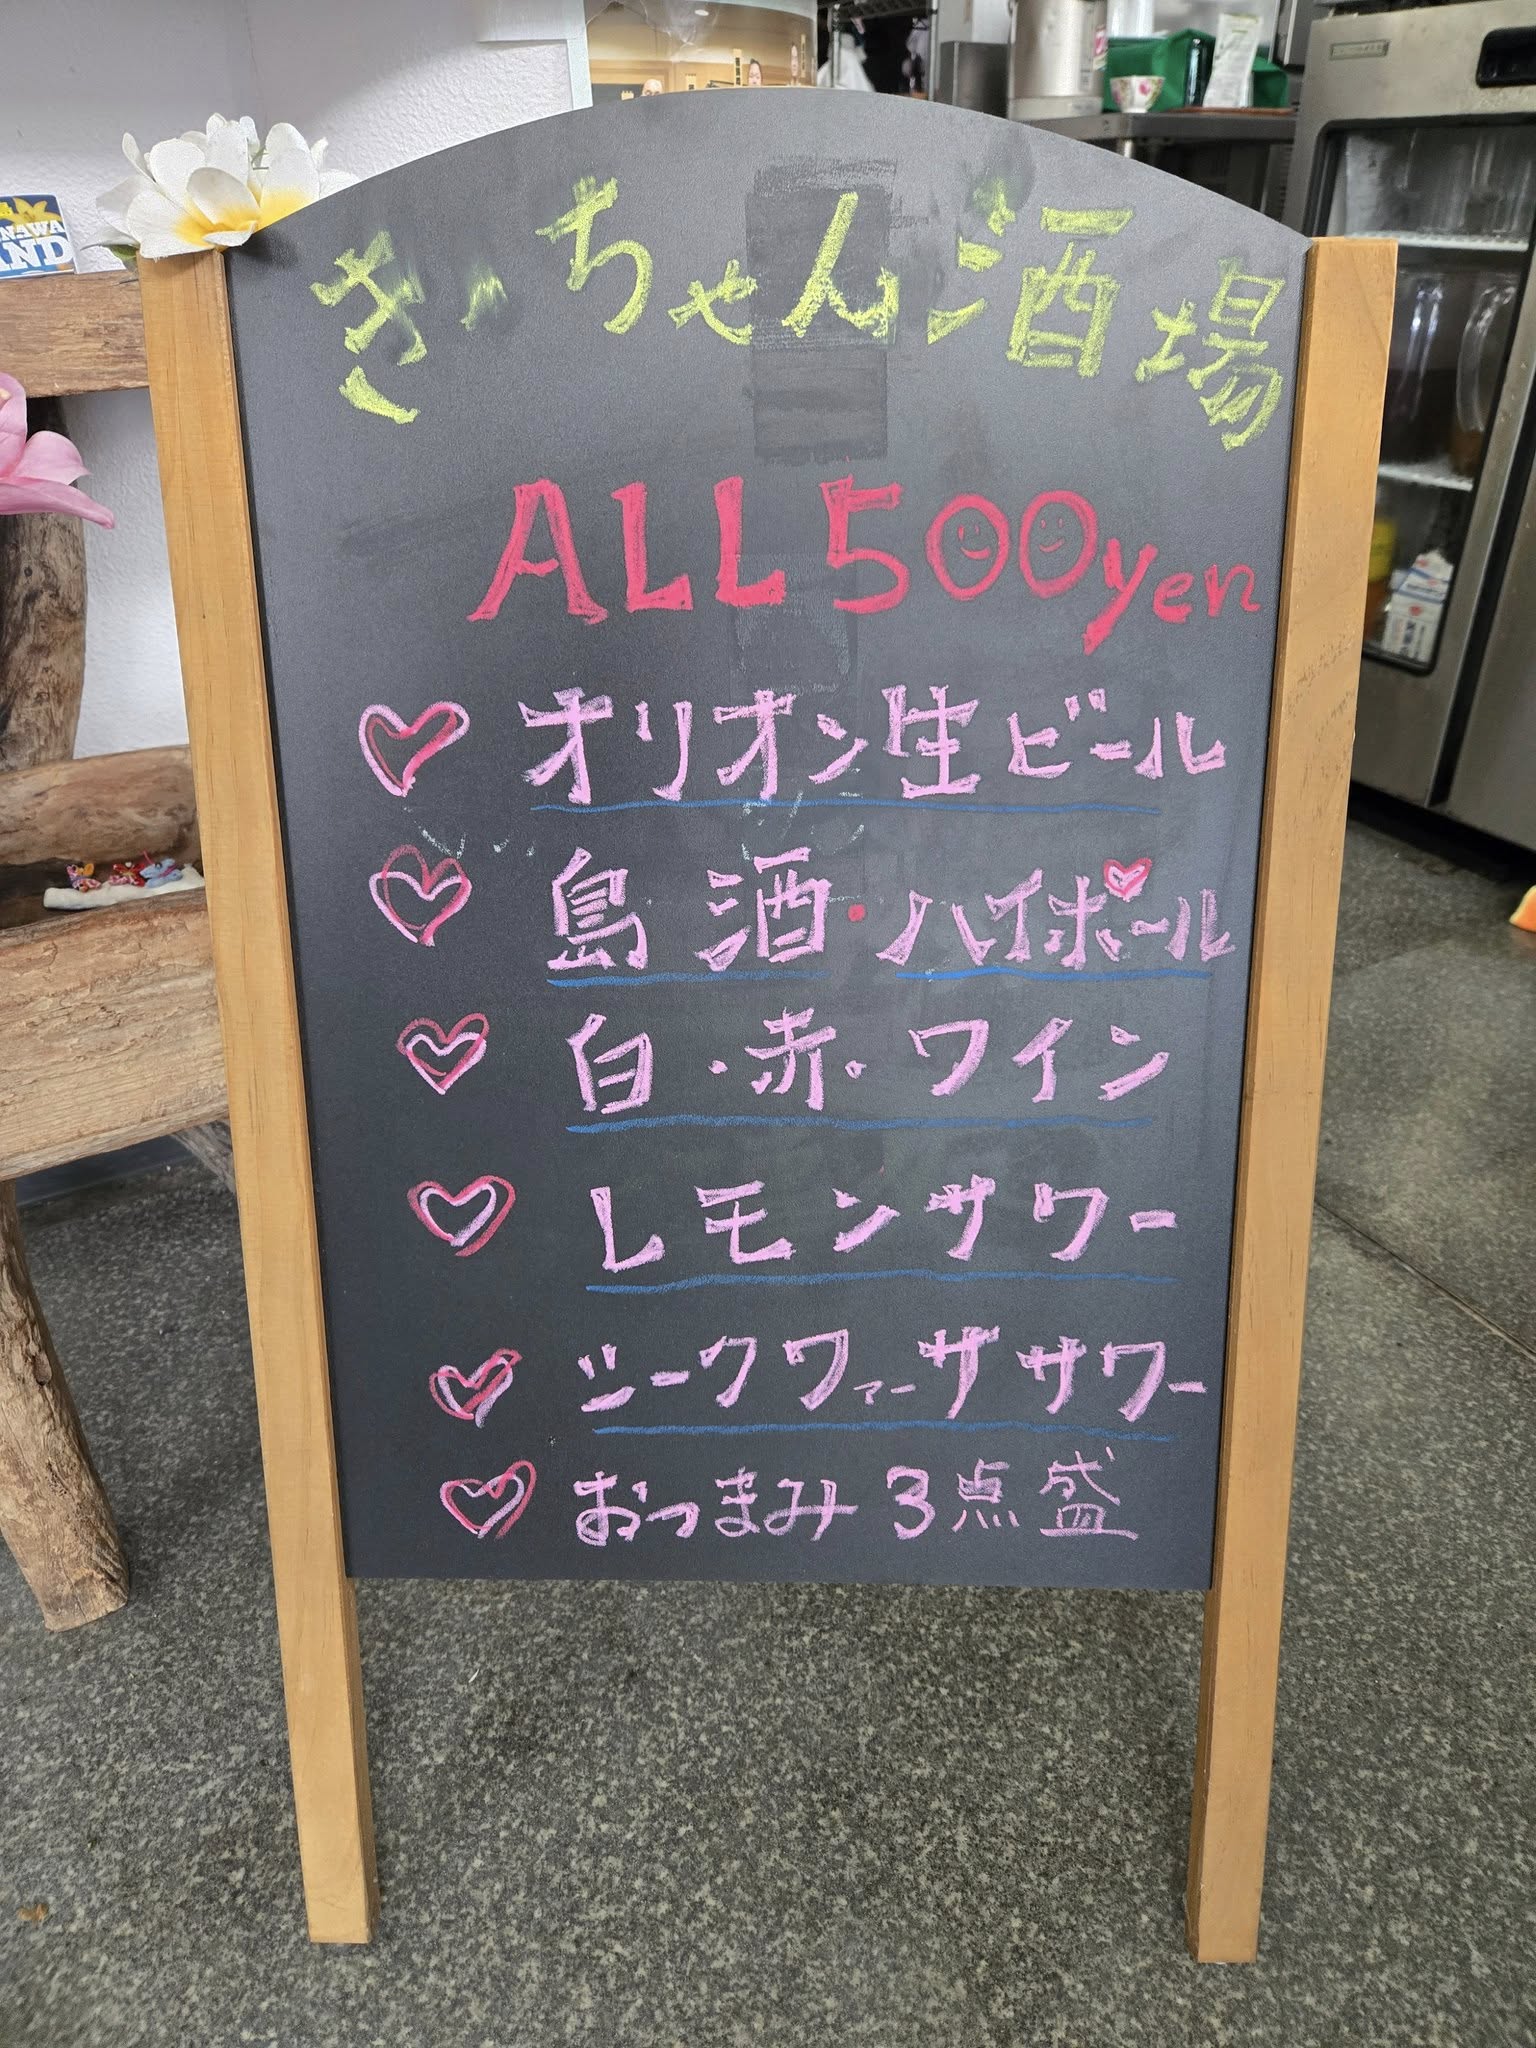 きっちゃん酒場
ALL 500yen
オリオン生ビール
島酒・ハイボール
白・赤・ワイン
レモンサワー
シークワァーサーサワー
おつまみ3点盛